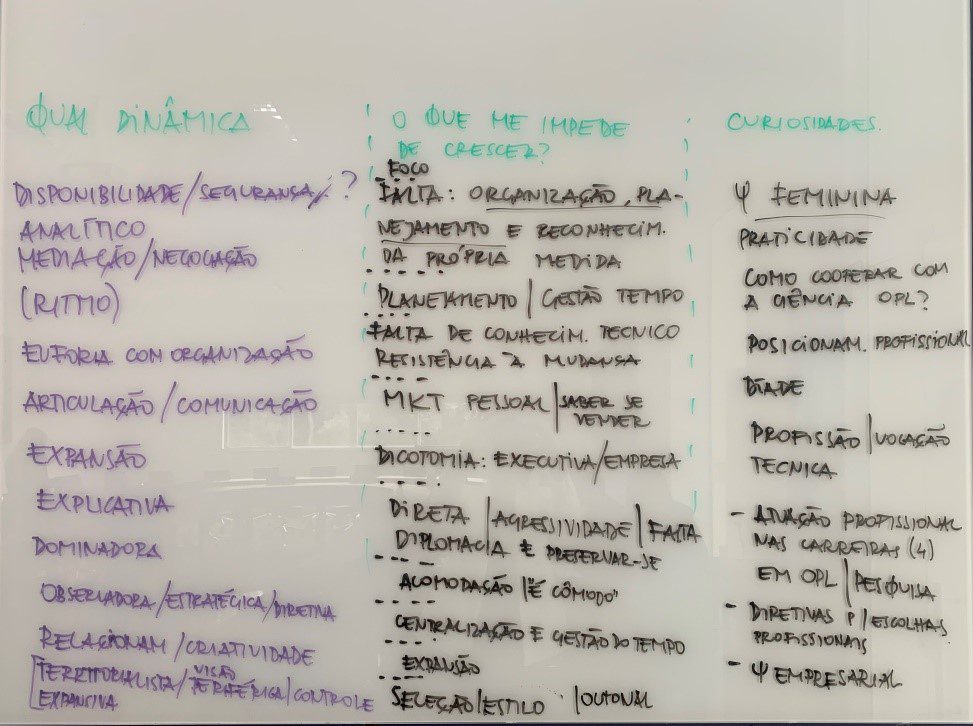 QUAL DINÂMICA
DISPONIBILIDADE/SEGURANSA/ ?
ANALÍTICO
MEDIAÇÃO/NEGOCAÇÃO
(RITMO)
EUFORIA COM ORGANIZAÇÃO
ARTICULAÇÃO/COMUNICAÇÃO
EXPANSÃO
EXPLICATIVA
DOMINADORA
OBSERVADORA/ESTRATÉGICA/DIRETIVA
RELACIONAM/CRIATIVIDADE
TERRITORIALISTA/VISÃO PERIFÉRICA/CONTROLE
EXPANSIVA
O QUE ME IMPEDE
DE CRESCER?
FOCO
FALTA: ORGANIZAÇÃO, PLA-
NEJAMENTO E RECONHECIM.
DA PRÓPRIA MEDIDA
PLANEJAMENTO | GESTÃO TEMPO
FALTA DE CONHECIM. TECNICO
RESISTÊNCIA À MUDANSA
MKT PESSOAL | SABER SE
VENDER
DICOTOMIA: EXECUTIVA/EMPRESA
DIRETA | AGRESSIVIDADE | FALTA
DIPLOMACIA E PRESERVAR-SE
ACOMODAÇÃO | "É CÔMODO"
CENTRALIZAÇÃO E GESTÃO DO TEMPO
EXPANSÃO
SELEÇÃO/ESTILO | OUTONAL
CURIOSIDADES.
Ψ FEMININA
PRATICIDADE
COMO COOPERAR COM
A CIÊNCIA OPL?
POSICIONAM. PROFISSIONAL
DÍADE
PROFISSÃO | VOCAÇÃO
TECNICA
- ATUAÇÃO PROFISSIONAL
NAS CARREIRAS (4)
EM OPL | PESQUISA
- DIRETIVAS P/ ESCOLHAS
PROFISSIONAIS
- Ψ EMPRESARIAL